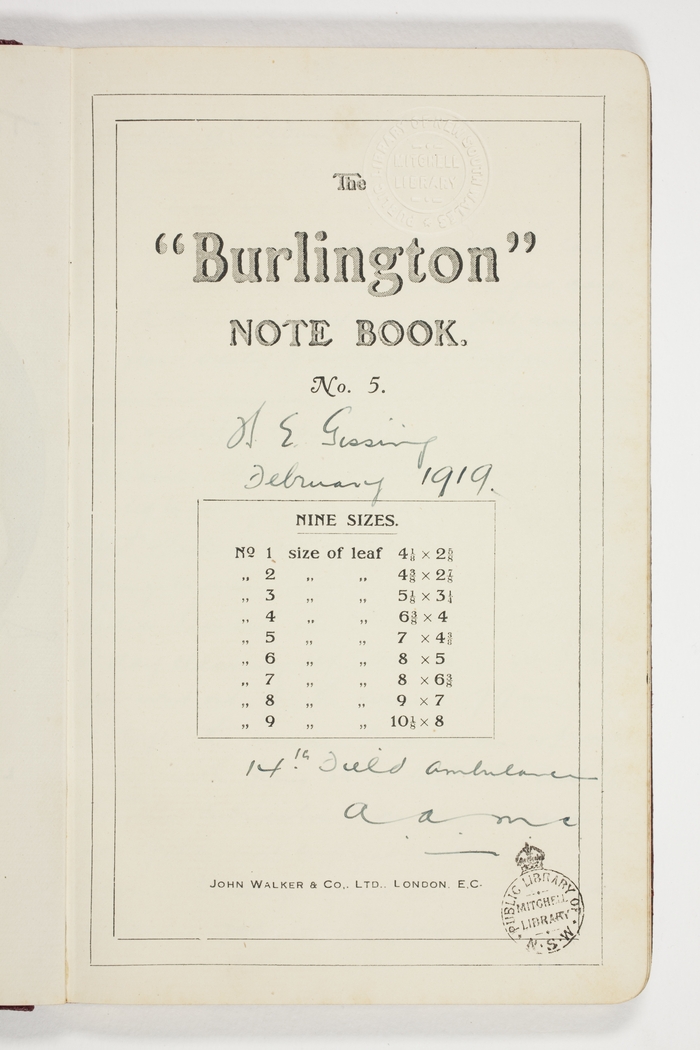 PUBLIC LIBRARY OF NEW SOUTH WALES
MITCHELL
LIBRARY
The
“Burlington”
NOTE BOOK.
No. 5.
H E Gissing
February 1919.
NINE SIZES.
No 1 size of leaf 4⅛ × 2⅝
„ 2 „ „ 4⅜ × 2⅞
„ 3 „ „ 5⅛ × 3¼
„ 4 „ „ 6⅜ × 4
„ 5 „ „ 7 × 4⅜
„ 6 „ „ 8 × 5
„ 7 „ „ 8 × 6⅜
„ 8 „ „ 9 × 7
„ 9 „ „ 10⅛ × 8
14th Field Ambulance
A.A.M.C
JOHN WALKER & CO,. LTD.. LONDON. E,C.
PUBLIC LIBRARY OF
MITCHELL
LIBRARY
N.S.W.